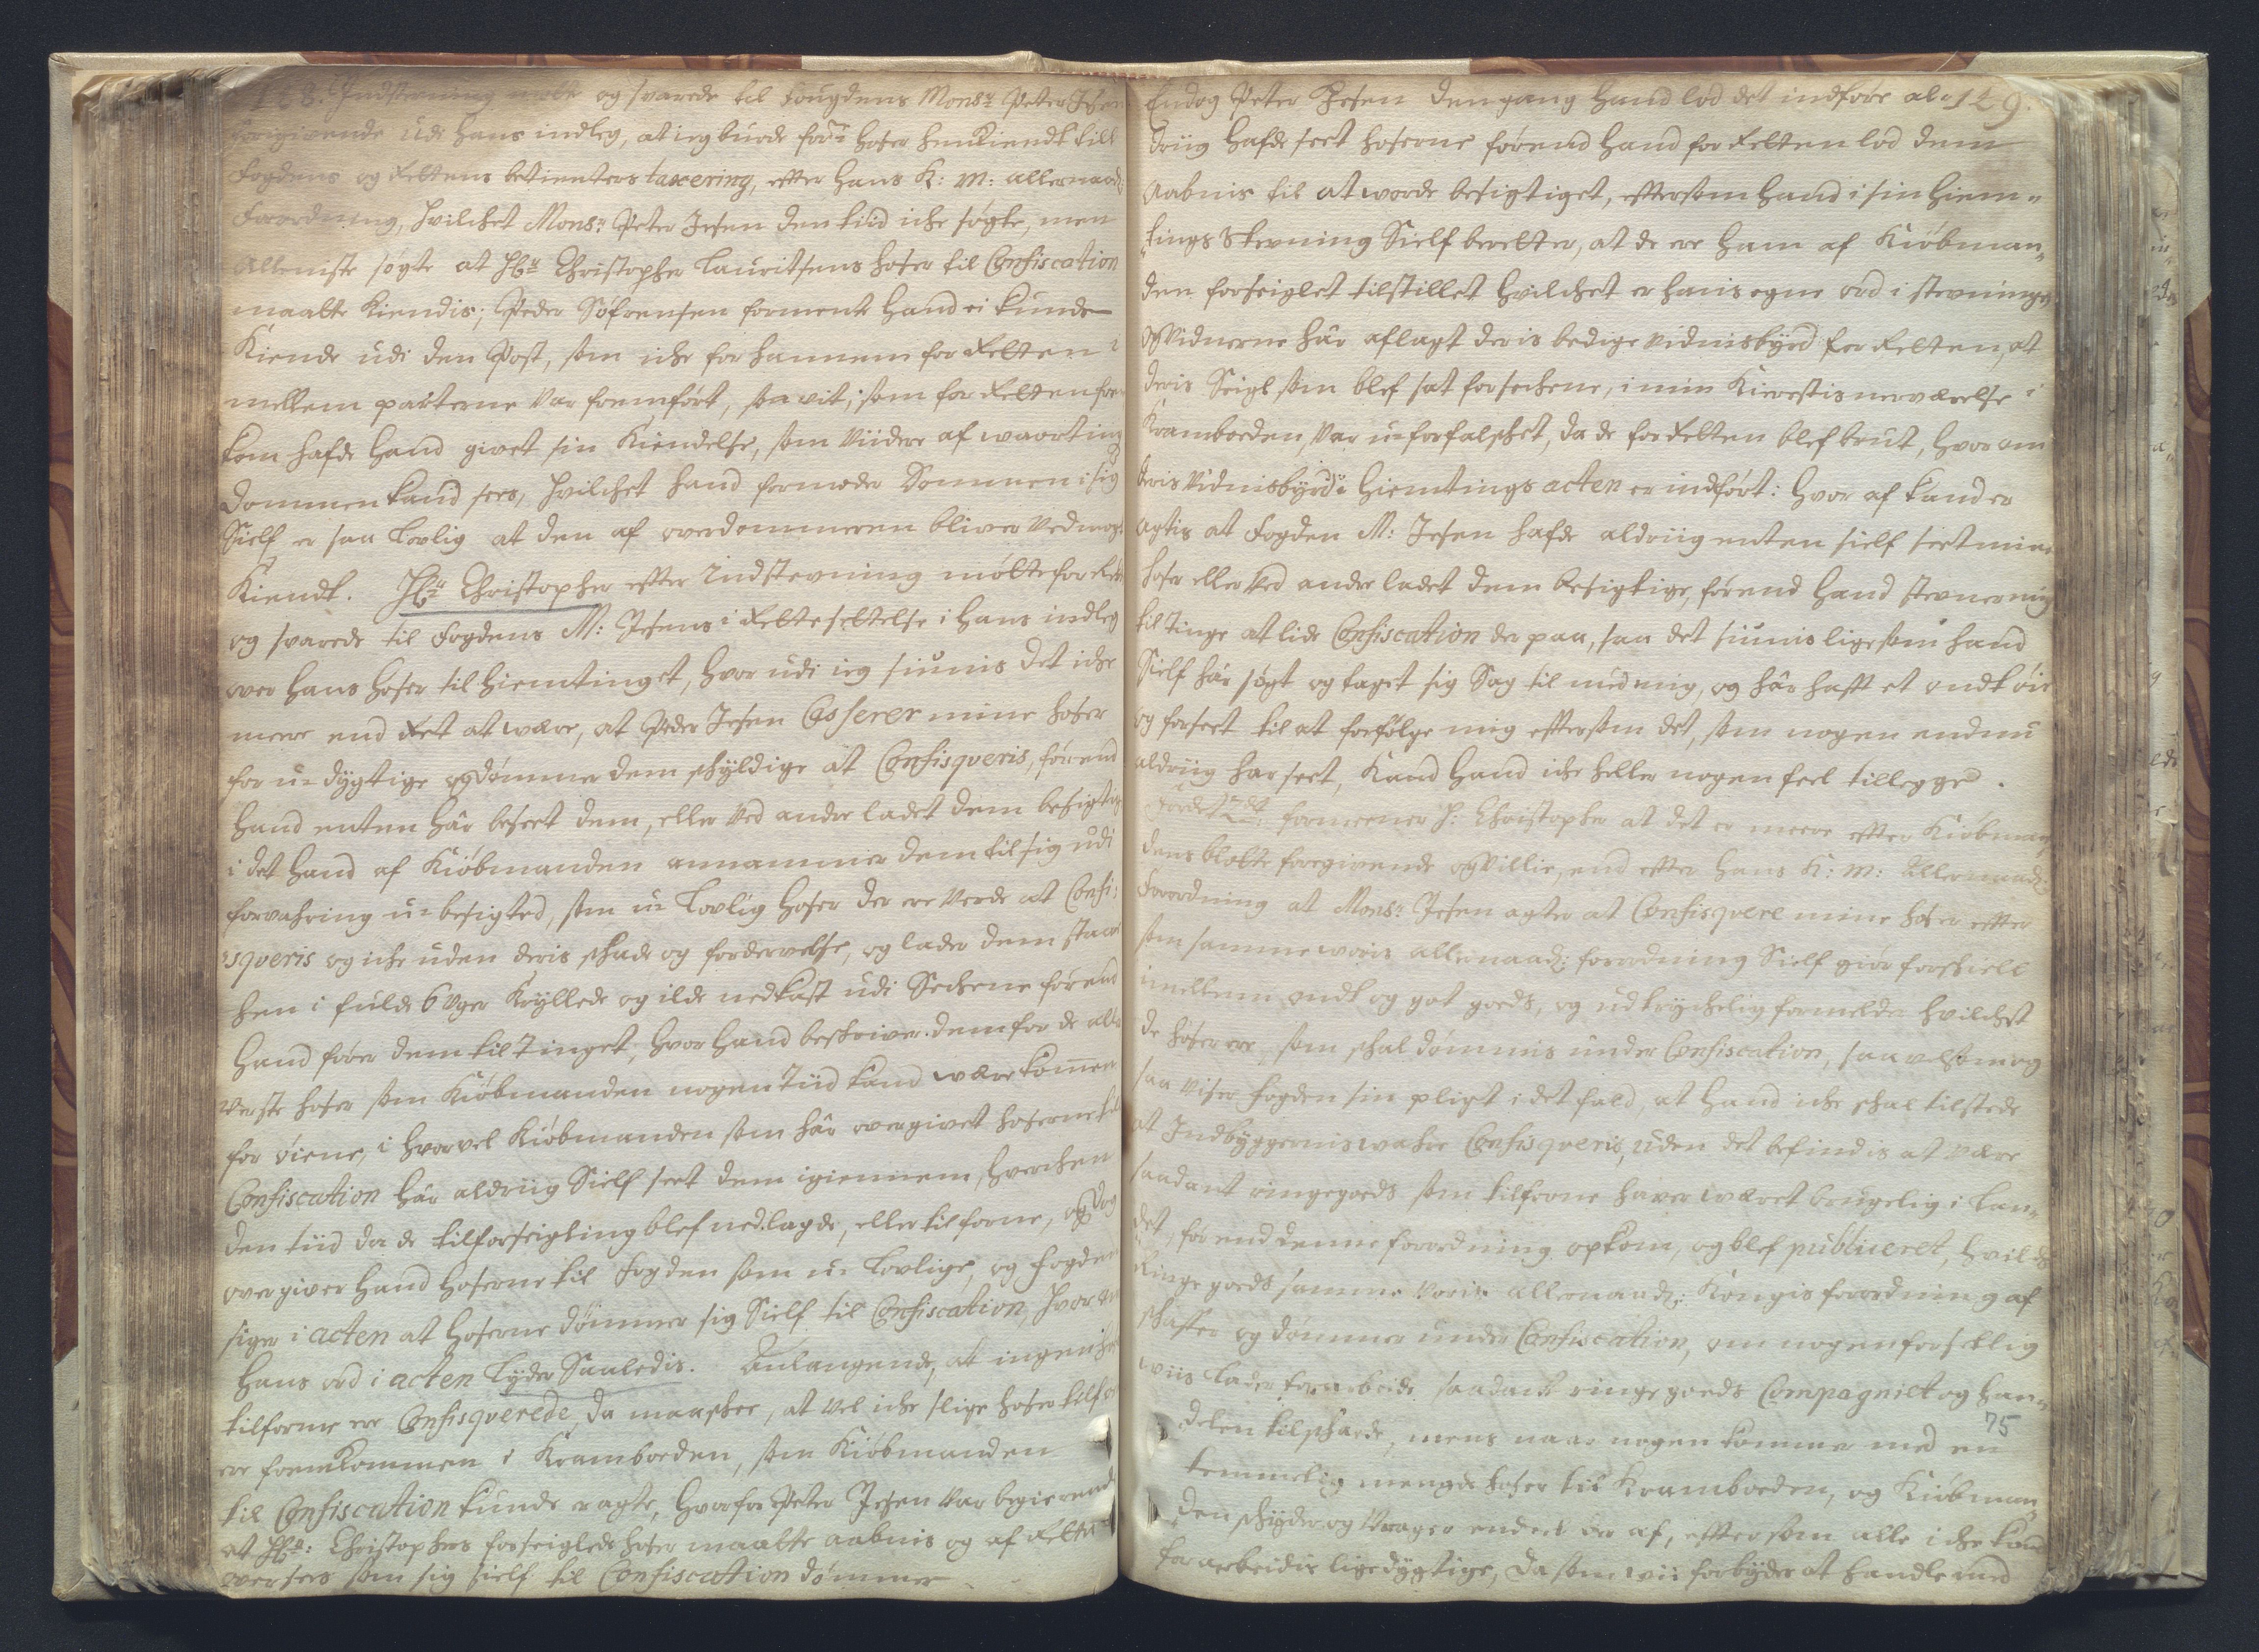 148. Indstevning møtte og svarede til Fougdens Monsr Peter Jesen
foregivende udi hans indleg, at ieg burde for u- hoser henkiendt till
Fogdens og Rettens betienters taxering, efter Hans K: M: allernaad:
Forordning, hvilchet Monsr: Peter Jesen den tiid iche søgte, men
Alleniste søgte at Hr Christopher Lauritsens hoser til Confiscation
maatte Kiendis; Peder Søfrensen formente hand ei kunde
Kiende udi den Post, som iche for hannem for Retten i
mellem parterne var fremført, saa vit, som for Retten frem
kom hafde hand givet sin Kiendelse, som viidere af waarting
dommen kand sees, hvilchet hand formoder Dommen i sig
Sielf er saa Lovlig at den af overdommeren bliver ved magt
Kiendt. Hr Christopher efter Indstevning møtte for Retten
og svarede til Fogdens M: Jesens i Rettesettelse i hans indleg
over hans hoser til hiemtinget, hvor udi ieg siunis det iche
meere end Ret at være, at Peder Jesen Casserer mine hoser
for u-dygtige og dømmer dem schyldige at Confisqveris, førend
hand enten hâr beseet dem, eller ved andre ladet dem besigtige
i det hand af Kiöbmanden annammer dem til sig udi
forvahring u-besigted, som u-Lovlig hoser der ere verde at Confi-
sqveris og iche uden deris schade og fordervelse, og lader dem staae
hen i fulde 6 uger Kryllede og ilde nedkast udi Sechene førend
hand fører dem til Tinget, hvor hand beskriver dem for de aller
verste hoser som Kiöbmanden nogen Tiid kand være kommen
for øiene, i hvorvel Kiöbmanden som hâr overgivet hoserne til
Confiscation hâr aldriig Sielf seet dem igiennem, hverchen
den tiid da de til forseigling blef nedlagde, eller tilforne, og dog
overgiver hand hoserne til Fogden som u-Lovlige, og Fogden
siger i acten at hoserne dömmer sig Sielf til Confiscation, hvor om
Hans ord i acten Lyder Saaledis. Anlangende, at ingen hoser
tilforne ere Confisqverede, da maaschee, at vel iche slige hoser tilforn
ere fremkommen i Kramboeden, som Kiöbmanden
til Confiscation kunde eragte, hvorfor Peter Jesen var begierende
at Hr: Christophers forseiglede hoser maatte aabnis og af Retten
oversees som sig sielf til Confiscation dömmer
Endog Peter Jesen dengang hand lod det indføre al- 149.
driig hafde seet hoserne førend hand for Retten lod dem
aabnis til at worde besigtiget, eftersom hand i sin hiem-
tings Stevning Sielf beretter, at de ere ham af Kiöbman-
den forseiglet tilstillet hvilchet er hans egne ord i stevningen
og Vidnerne hâr aflagt deris bedige vidnisbyrd for Retten, at
deris Seigl som blef sat for sechene, i min Kierestis nerværelse i
Kramboeden, var u-forfalschet, da de for Retten blef brut, hvor om
deris Vidnisbyrd i hiemtings acten er indført: hvor af kand er
agtis at Fogden M: Jesen hafde aldriig enten sielf seet mine
hoser eller ved andre ladet dem besigtige, førend hand stevner mig
til Tinge at lide Confiscation der paa, saa det siunis ligesom hand
Sielf hâr søgt og taget sig Sag til med mig, og hâr haft et ondt øie
og forsæt til at forfølge mig eftersom det, som nogen endnu
aldriig har seet, Kand hand iche heller nogen feel tillegge.
formeener H: Christopher at det er meere efter Kiöbman-
dens blotte foregivende og Villie, end efter Hans K: M: Allernaad:
Forordning at Monsr Jesen agter at Confisqvere mine hoser efter
som samme woris allernaad: forordning Sielf giör forskiell
imellem ondt og got goeds, og udtrychelig formelder hvilchet
de hoser ere, som schal dømmis under Confiscation, saavelsom og
saa viser Fogden sin pligt i det fald, at hand iche schal tilstede
at Indbyggernis wahre Confisqveris, uden det befindis at være
saadant ringe goeds som tilforne haver været brugelig i Lan-
det, førend denne forordning opkom, og blef publiceret, hvilchet
Ringe goeds samme Voris allernaad: Kongis forordning af
schaffer og dömmer under Confiscation, om nogen forsetlig
wiis lader forarbeide saadant ringe goeds Compagniet og han-
delen til schade, mens naar nogen kommer med en
temmelig mengde hoser til Kramboeden, og Kiöbman-
den schyder og Vrager endeel der af, eftersom alle iche kand
forarbeidis lige dygtige, da som wii forbyder at handle med
75